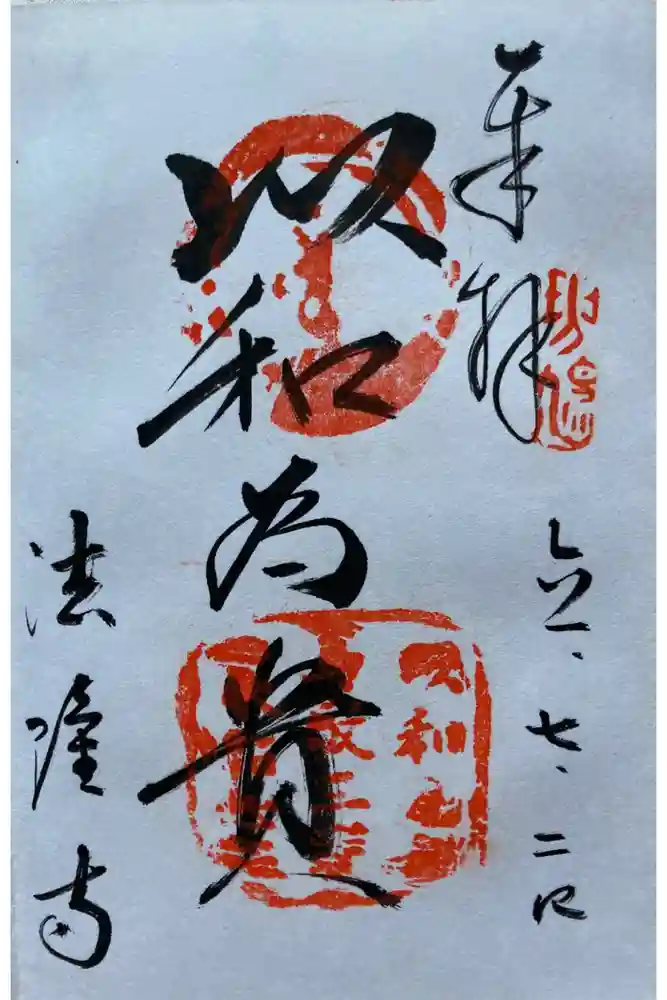 奉拝
六、七、二日
以和為貴
法隆寺